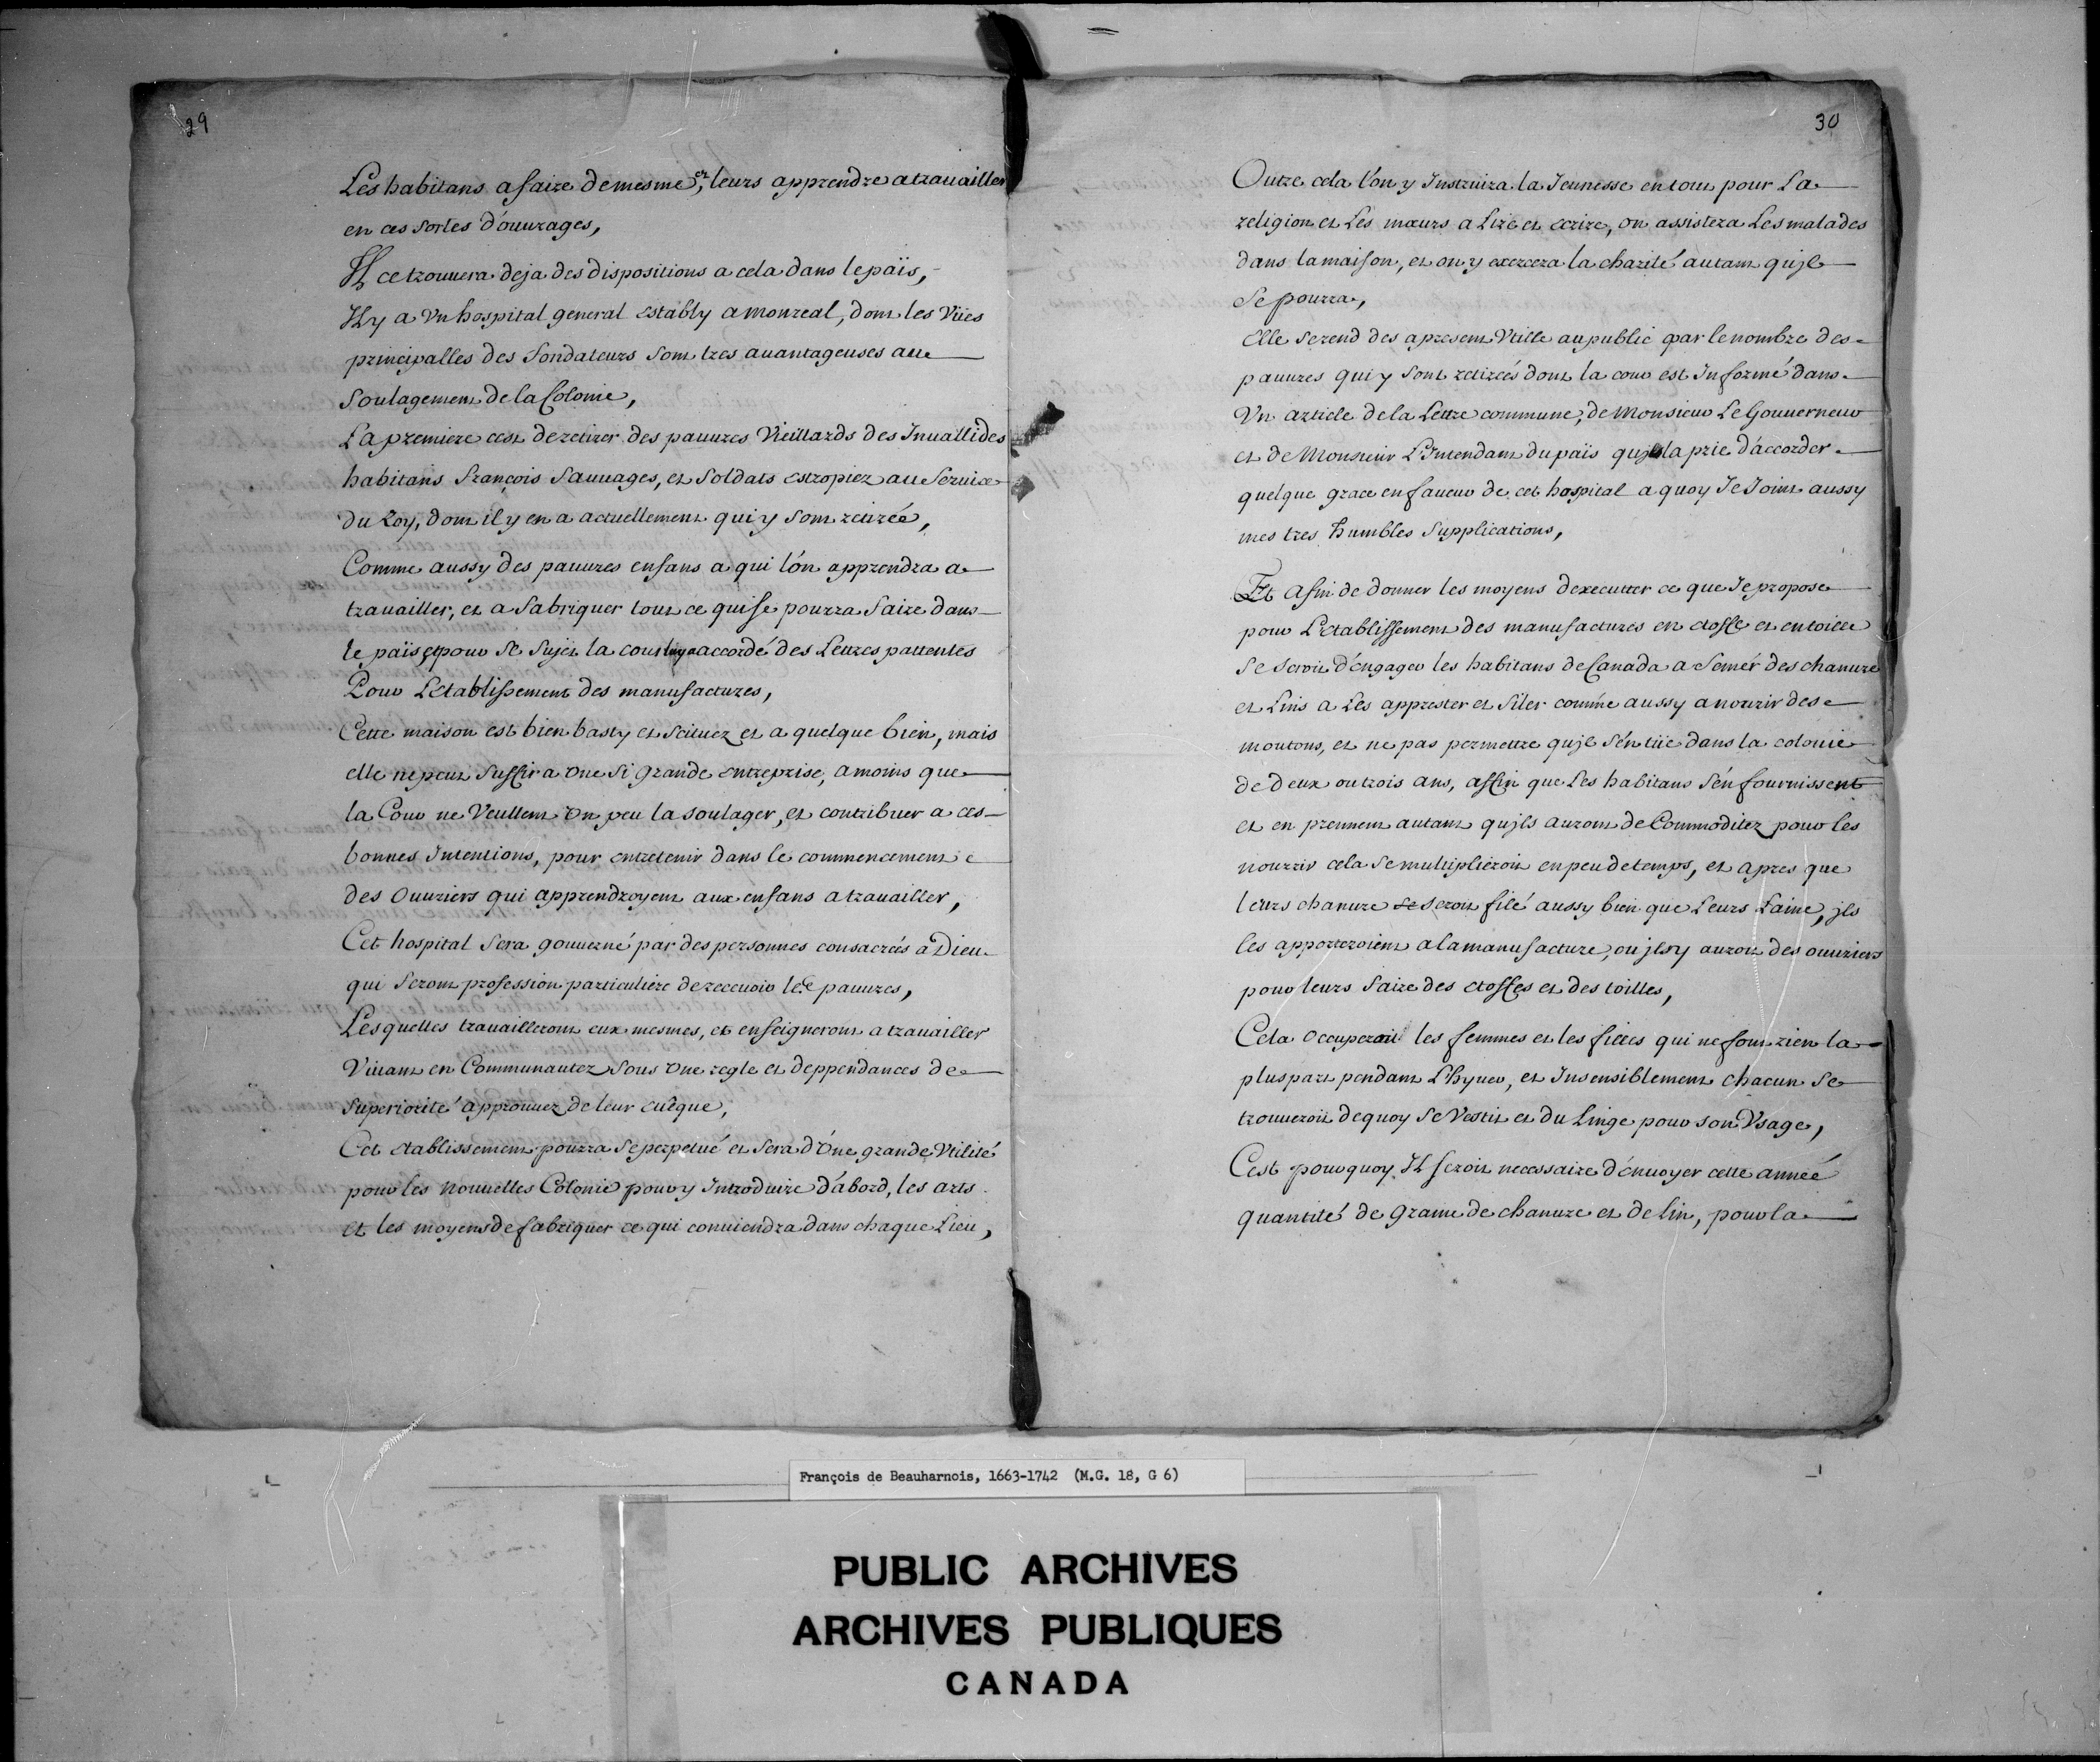 29
Les habitans a faire de mesme, et leurs apprendre a trauailler
en ces sortes d'ouurages,
Il ce trouuera deja des dispositions a cela dans le païs,
Il y a vn hospital general estably a monreal, dont les Vües
principalles des fondateurs sont tres auantageuses au
Soulagement de la Colonie,
La premiere cest de retirer des pauures Vieillards des Inuallides
habitans françois Sauuages, et Soldats estropiez au Seruice
du Roy, dont il y en a actuellement qui y sont retirée,
Comme aussy des pauures enfans a qui l'on apprendra a
trauailler, et a fabriquer tout ce qui se pourra faire dans
le païs et pour se sujet la cour luy a accordé des Lettres pattentes
Pour L'établissement des manufactures,
Cette maison est bien basty et scituez et a quelque bien, mais
elle ne peut Suffir a une Si grande entreprise, a moins que
la Cour ne Veullent un peu la soulager, et contribuer a ces
bonnes Intentions, pour entretenir dans le commencement
des Ouuriers qui apprendroyent aux enfans a trauailler,
Cet hospital Sera gouuerné par des personnes consacrés a Dieu
qui feront profession particuliere de receuoir les pauures,
Lesquelles trauailleront eux mesmes, et enseigneront a trauailler
Viuant en Communautez Sous une regle et deppendances de
Superiorité approuuez de leur euêque,
Cet établissement pourra se perpetué et Sera d'une grande Vtilité
pour les Nouuelles Colonie pour y Introduire d'abord, les arts
et les moyens de fabriquer ce qui conuiendra dans chaque Lieu,
30
Outre cela l'on y Instruira la Jeunesse en tout pour La
religion et Les mœurs a Lire et ecrire, on assistera Les malades
dans la maison, et on y exercera la charité autant qu'jl
Se pourra,
Elle se rend des apresent Vtille au public par le nombre des
pauures qui y sont retireés dont la cour est Informé dans
Vn article de la Lettre commune, de Monsieur Le Gouuerneur
et de Monsieur L'Intendant du païs qui la prie d'accorder
quelque grace en faueur de cet hospital a quoy Je Joint aussy
mes tres humbles Supplications,
Et afin de donner les moyens d'executter ce que Je propose
pour L'établissement des manufactures en etoffe et en toille
Se seroit d'engager les habitans de Canada a Semér des chanure
et Lins a Les apprester et filer comme aussy a nourir des
moutons, et ne pas permettre qu'jl s'en tüe dans la colonie
de deux ou trois ans, affin que Les habitans s'en fournissent
et en prennent autant qu'jls auront de Commoditez pour les
nourrir cela Se multiplieroit en peu de temps, et apres que
leurs chanure se seroit filé aussy bien que Leurs Laine, jls
les apporteroient a la manufacture, ou jls y auroit des ouuriers
pour leurs faire des etoffes et des toilles,
Cela Occuperoit les femmes et les filles qui ne font rien la
pluspart pendant L'hyuer, et Insensiblement chacun Se
trouueroit dequoy Se Vestir et du Linge pour son Vsage,
Cest pourquoy Il seroit necessaire d'enuoyer cette anneé
quantité de graine de chanure et de lin, pour la
François de Beauharnois, 1663-1742 (M.G. 18, G 6)
PUBLIC ARCHIVES
ARCHIVES PUBLIQUES
CANADA